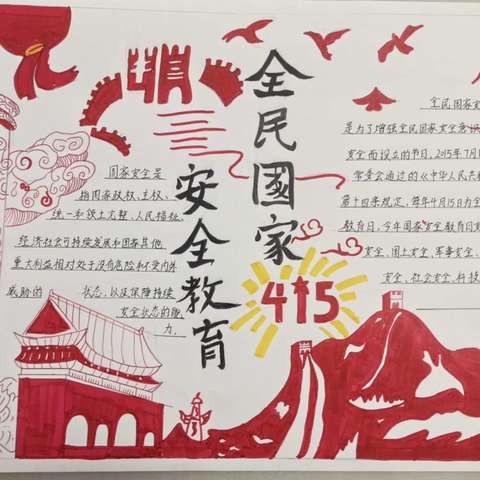 全民國家
安全教育
415
国家安全是
指国家政权、主权、
统一和领土完整、人民福祉、
经济社会可持续发展和国家其他
重大利益相对处于没有危险和不受内外
威胁的 状态，以及保障持续
安全状态的能
力。
全民国家安
是为了增强全民国家安全意识
安全而设立的节日，2015年7月1
常委会通过的《中华人民共和
第十四条规定，每年4月15日为全
教育日，今年国家安全教育日
安全、国土安全、军事安全、
安全、社会安全、科技